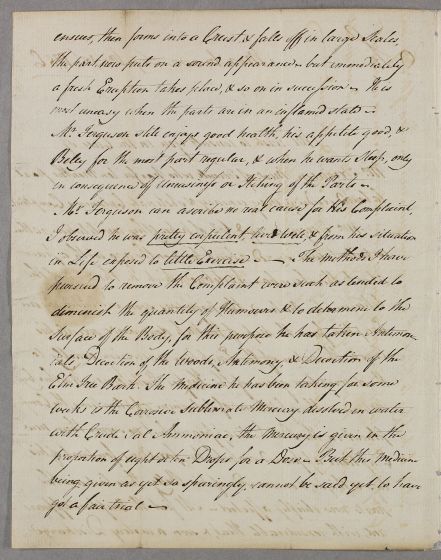 ensues, then forms into a Crust & falls off in large Scales,
the part now puts on a sound appearance, but immediately
a fresh Eruption takes place, & so on in succession. He is
most uneasy when the parts are in an inflamed state.
Mr. Ferguson still enjoys good health, his appetite good, &
Belly for the most part regular, & when he wants Sleep, only
in consequence of Uneasiness or Itching of the Parts.
Mr. Ferguson can ascribe no real cause for His Complaint,
I observed he was pretty corpulent, lived well, & from his situation
in Life exposed to little Exercise. — The method I have
pursued to remove the Complaint were such as tended to
diminish the quantity of Humours & to determine to the
Surface of the Body, for this purpose he has taken Antimon
ials, Decoction of the Woods, Antimony, & Decoction of the
Elm Tree Bark. The medicine he has been taking for some
weeks is the Corrosive Sublimate Mercury dissolved in water
with Crude Sal Ammoniac, the Mercury is given in the
proportion of eight or ten Drops for a Dose. But this Medicine
being given as yet so sparingly, cannot be said yet, to have
got a fair trial.